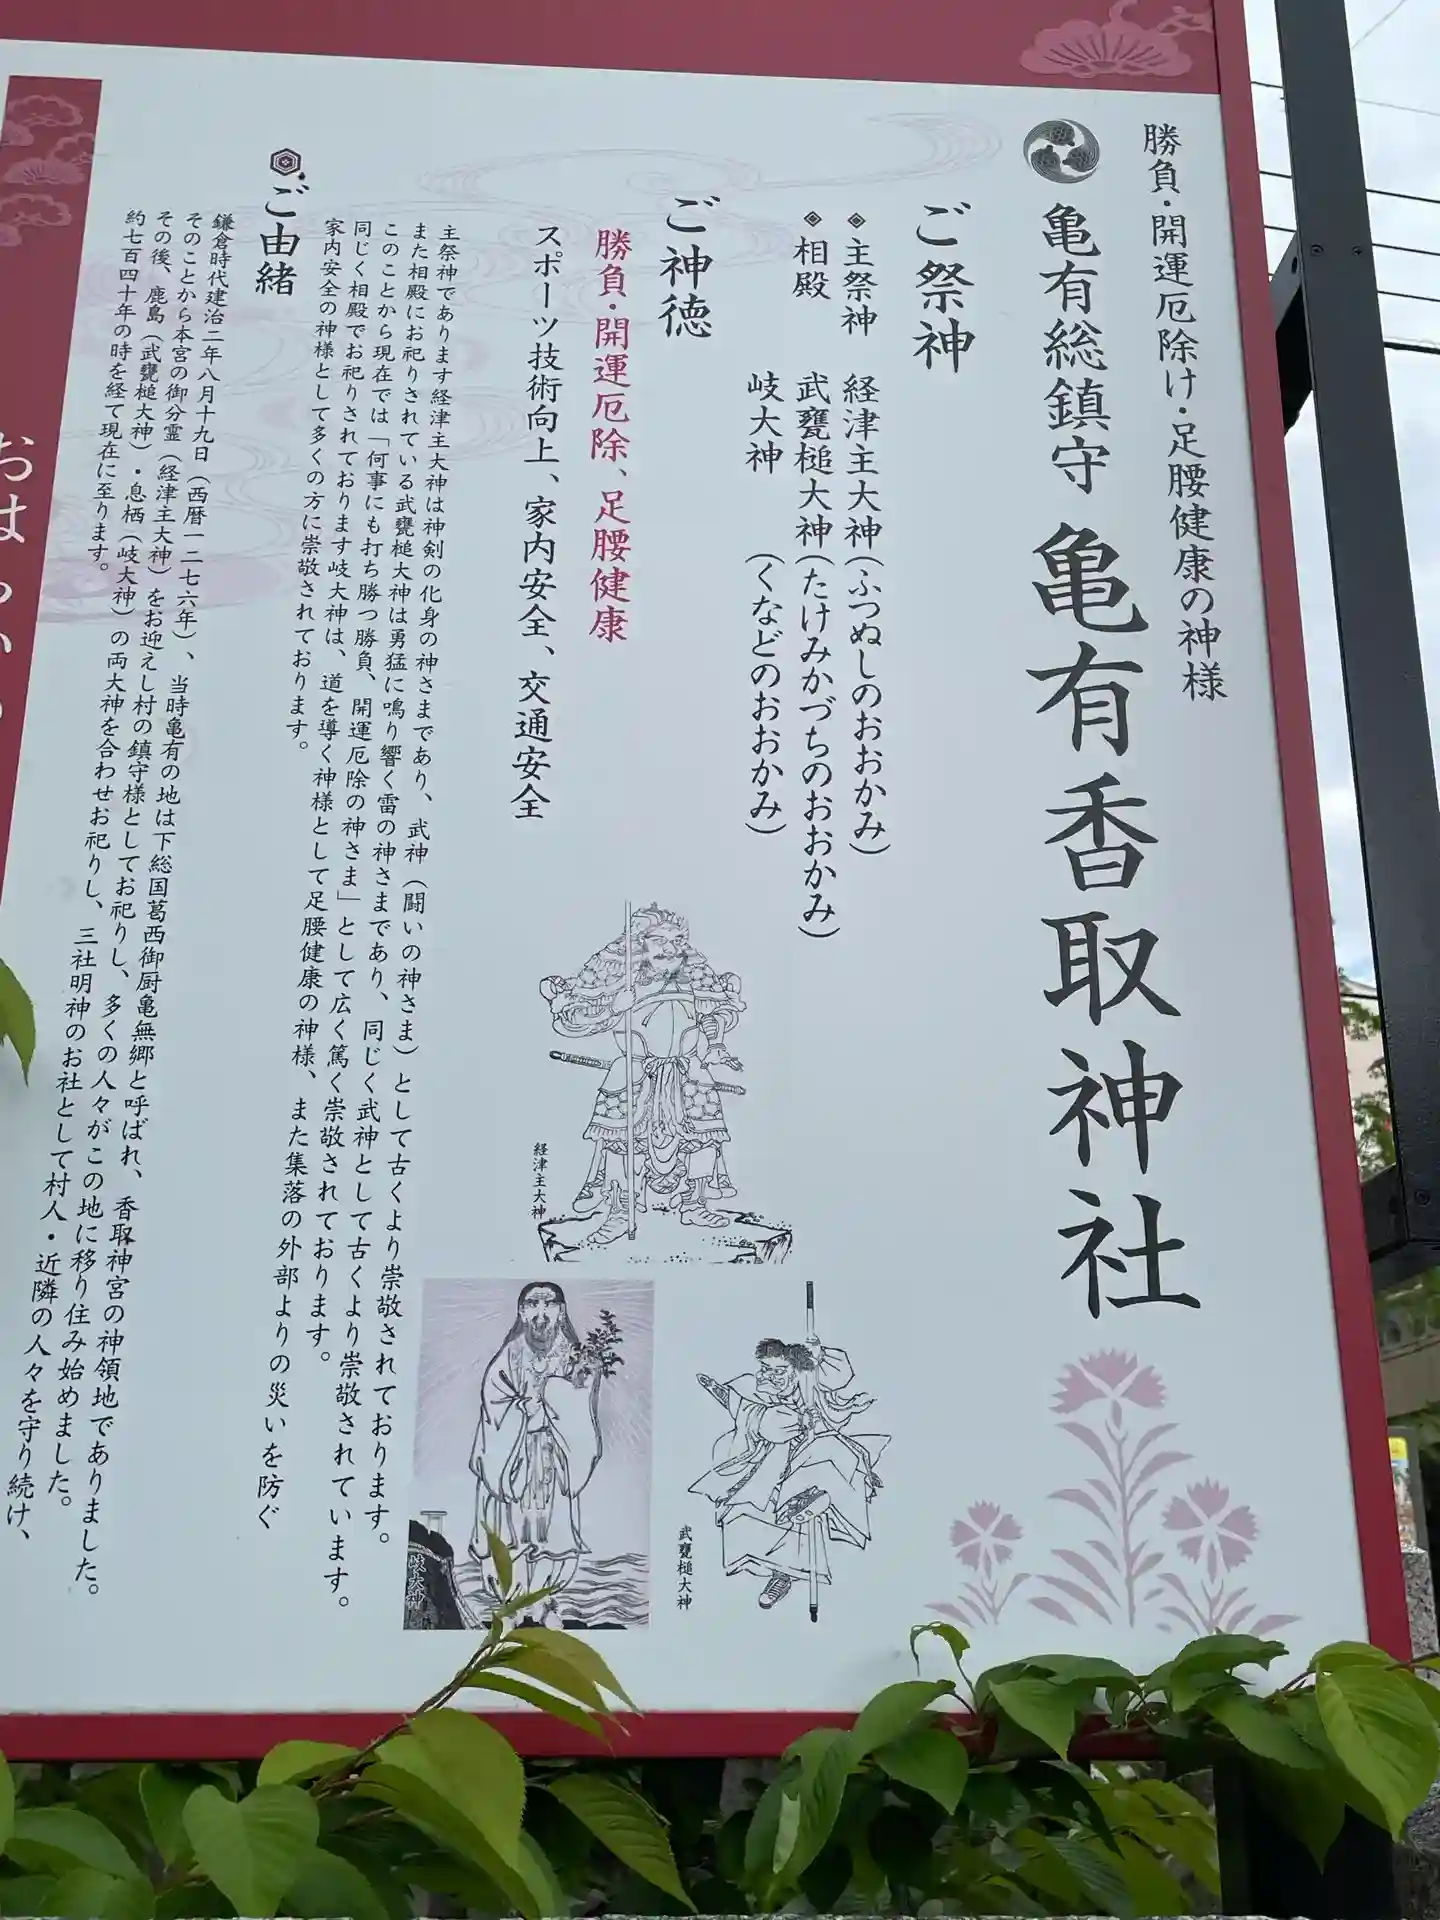 勝負・開運厄除け・足腰健康の神様
亀有総鎮守 亀有香取神社
ご祭神
主祭神 経津主大神(ふつぬしのおおかみ)
相殿 武甕槌大神(たけみかづちのおおかみ)
岐大神 (くなどのおおかみ)
ご神徳
勝負・開運厄除、足腰健康
スポーツ技術向上、家内安全、交通安全
主祭神であります経津主大神は神剣の化身の神さまであり、武神(闘いの神さま)として古くより崇敬されております。
また相殿にお祀りされている武甕槌大神は勇猛に鳴り響く雷の神さまであり、同じく武神として古くより崇敬されています。
このことから現在では「何事にも打ち勝つ勝負、開運厄除の神さま」として広く篤く崇敬されております。
同じく相殿でお祀りされております岐大神は、道を導く神様として足腰健康の神様、また集落の外部よりの災いを防ぐ
家内安全の神様として多くの方に崇敬されております。
ご由緒
鎌倉時代建治二年八月十九日(西暦一二七六年)、当時亀有の地は下総国葛西御厨亀無郷と呼ばれ、香取神宮の神領地でありました。
そのことから本宮の御分霊(経津主大神)をお迎えし村の鎮守様としてお祀りし、多くの人々がこの地に移り住み始めました。
その後、鹿島(武甕槌大神)・息栖(岐大神)の両大神を合わせお祀りし、三社明神のお社として村人・近隣の人々を守り続け、
約七百四十年の時を経て現在に至ります。
経津主大神
武甕槌大神
岐大神